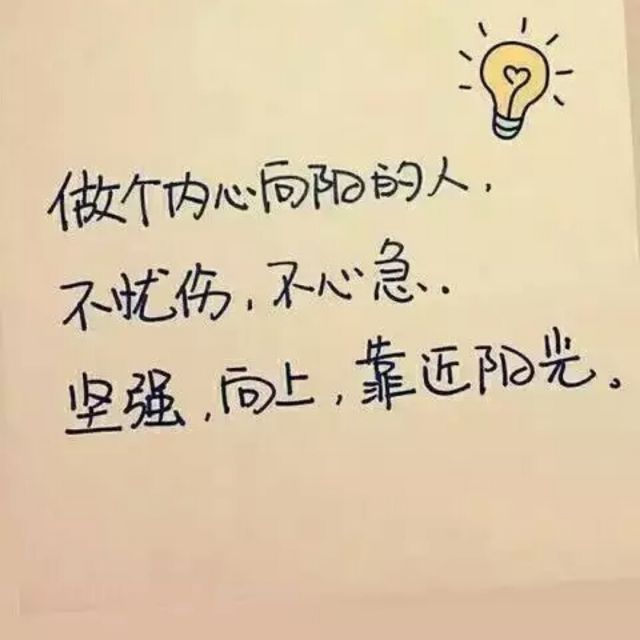 做个内心向阳的人，
不忧伤，不心急..
坚强，向上，靠近阳光。